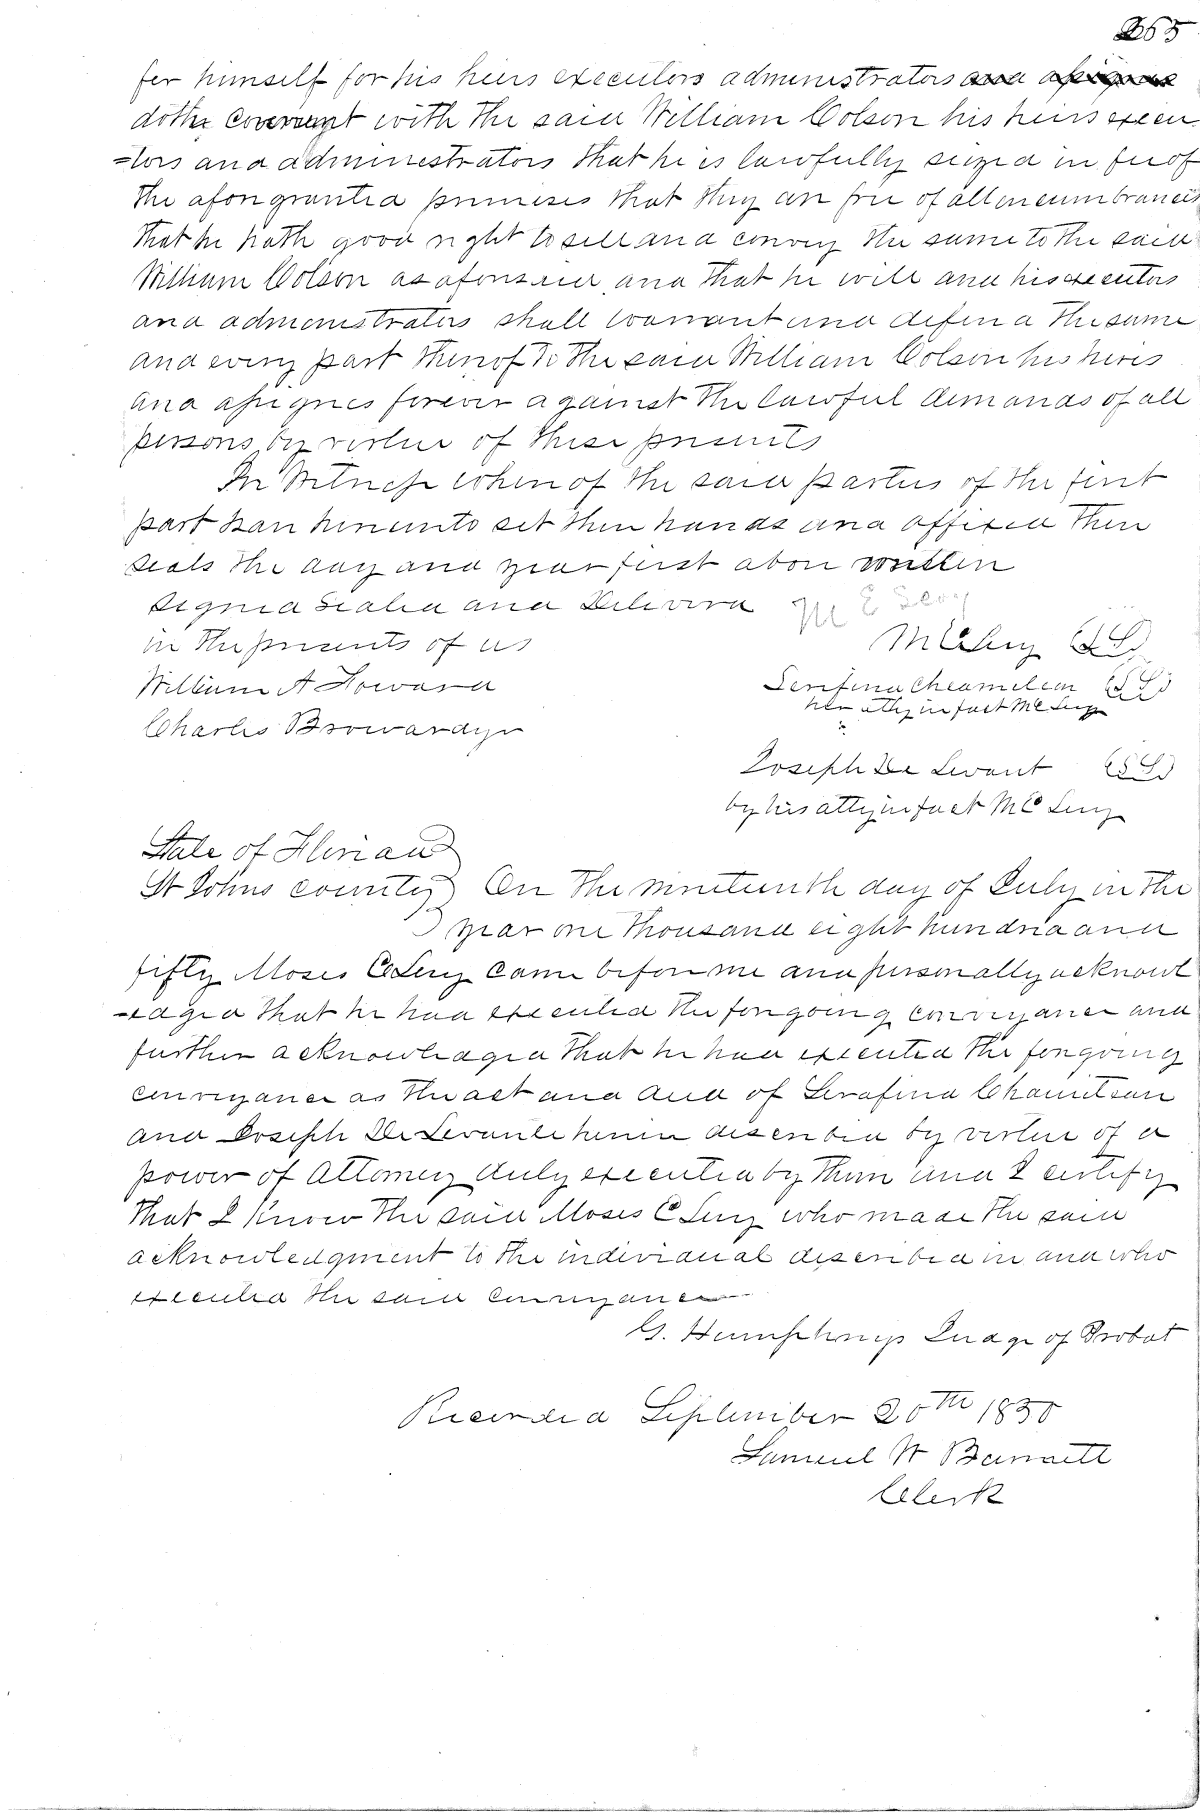 265
for himself for his heirs executors administrators and assigns
doth covenant with the said William Colson his heirs execu
=tors and administrators that he is lawfully seized in fee of
the aforegranted premises that they are free of all incumbrances
that he hath good right to sell and convey the same to the said
William Colson as aforesaid and that he will and his executors
and administrators shall warrant and defend the same
and every part thereof to the said William Colson his heirs
and assignes forever against the lawful demands of all
persons by virtue of these presents
In Witness whereof the said parties of the first
part have hereunto set their hands and affixed their
seals the day and year first above written
Signed Sealed and Delivered
in the presents of us
William A Howard
Charles Broward jr
M E Levy
M E Levy (LS)
Serifina Cheamitean (LS)
her atty in fact M E Levy
Joseph De Levant (LS)
by his atty in fact M E Levy
State of Florida
St Johns county On the nineteenth day of July in the
year one thousand eight hundred and
fifty Moses E Levy came before me and personally acknowl
-edged that he had executed the foregoing conveyance and
further acknowledged that he had executed the foregoing
conveyance as the act and deed of Serafina Chamitean
and Joseph De Levante herein described by virtue of a
power of attorney duly executed by them and I certify
that I know the said Moses E Levy who made the said
acknowledgment to the individual described in and who
executed the said conveyance
G. Humphreys Judge of Probat
Recorded September 20th 1850
Samuel W Barnett
Clerk